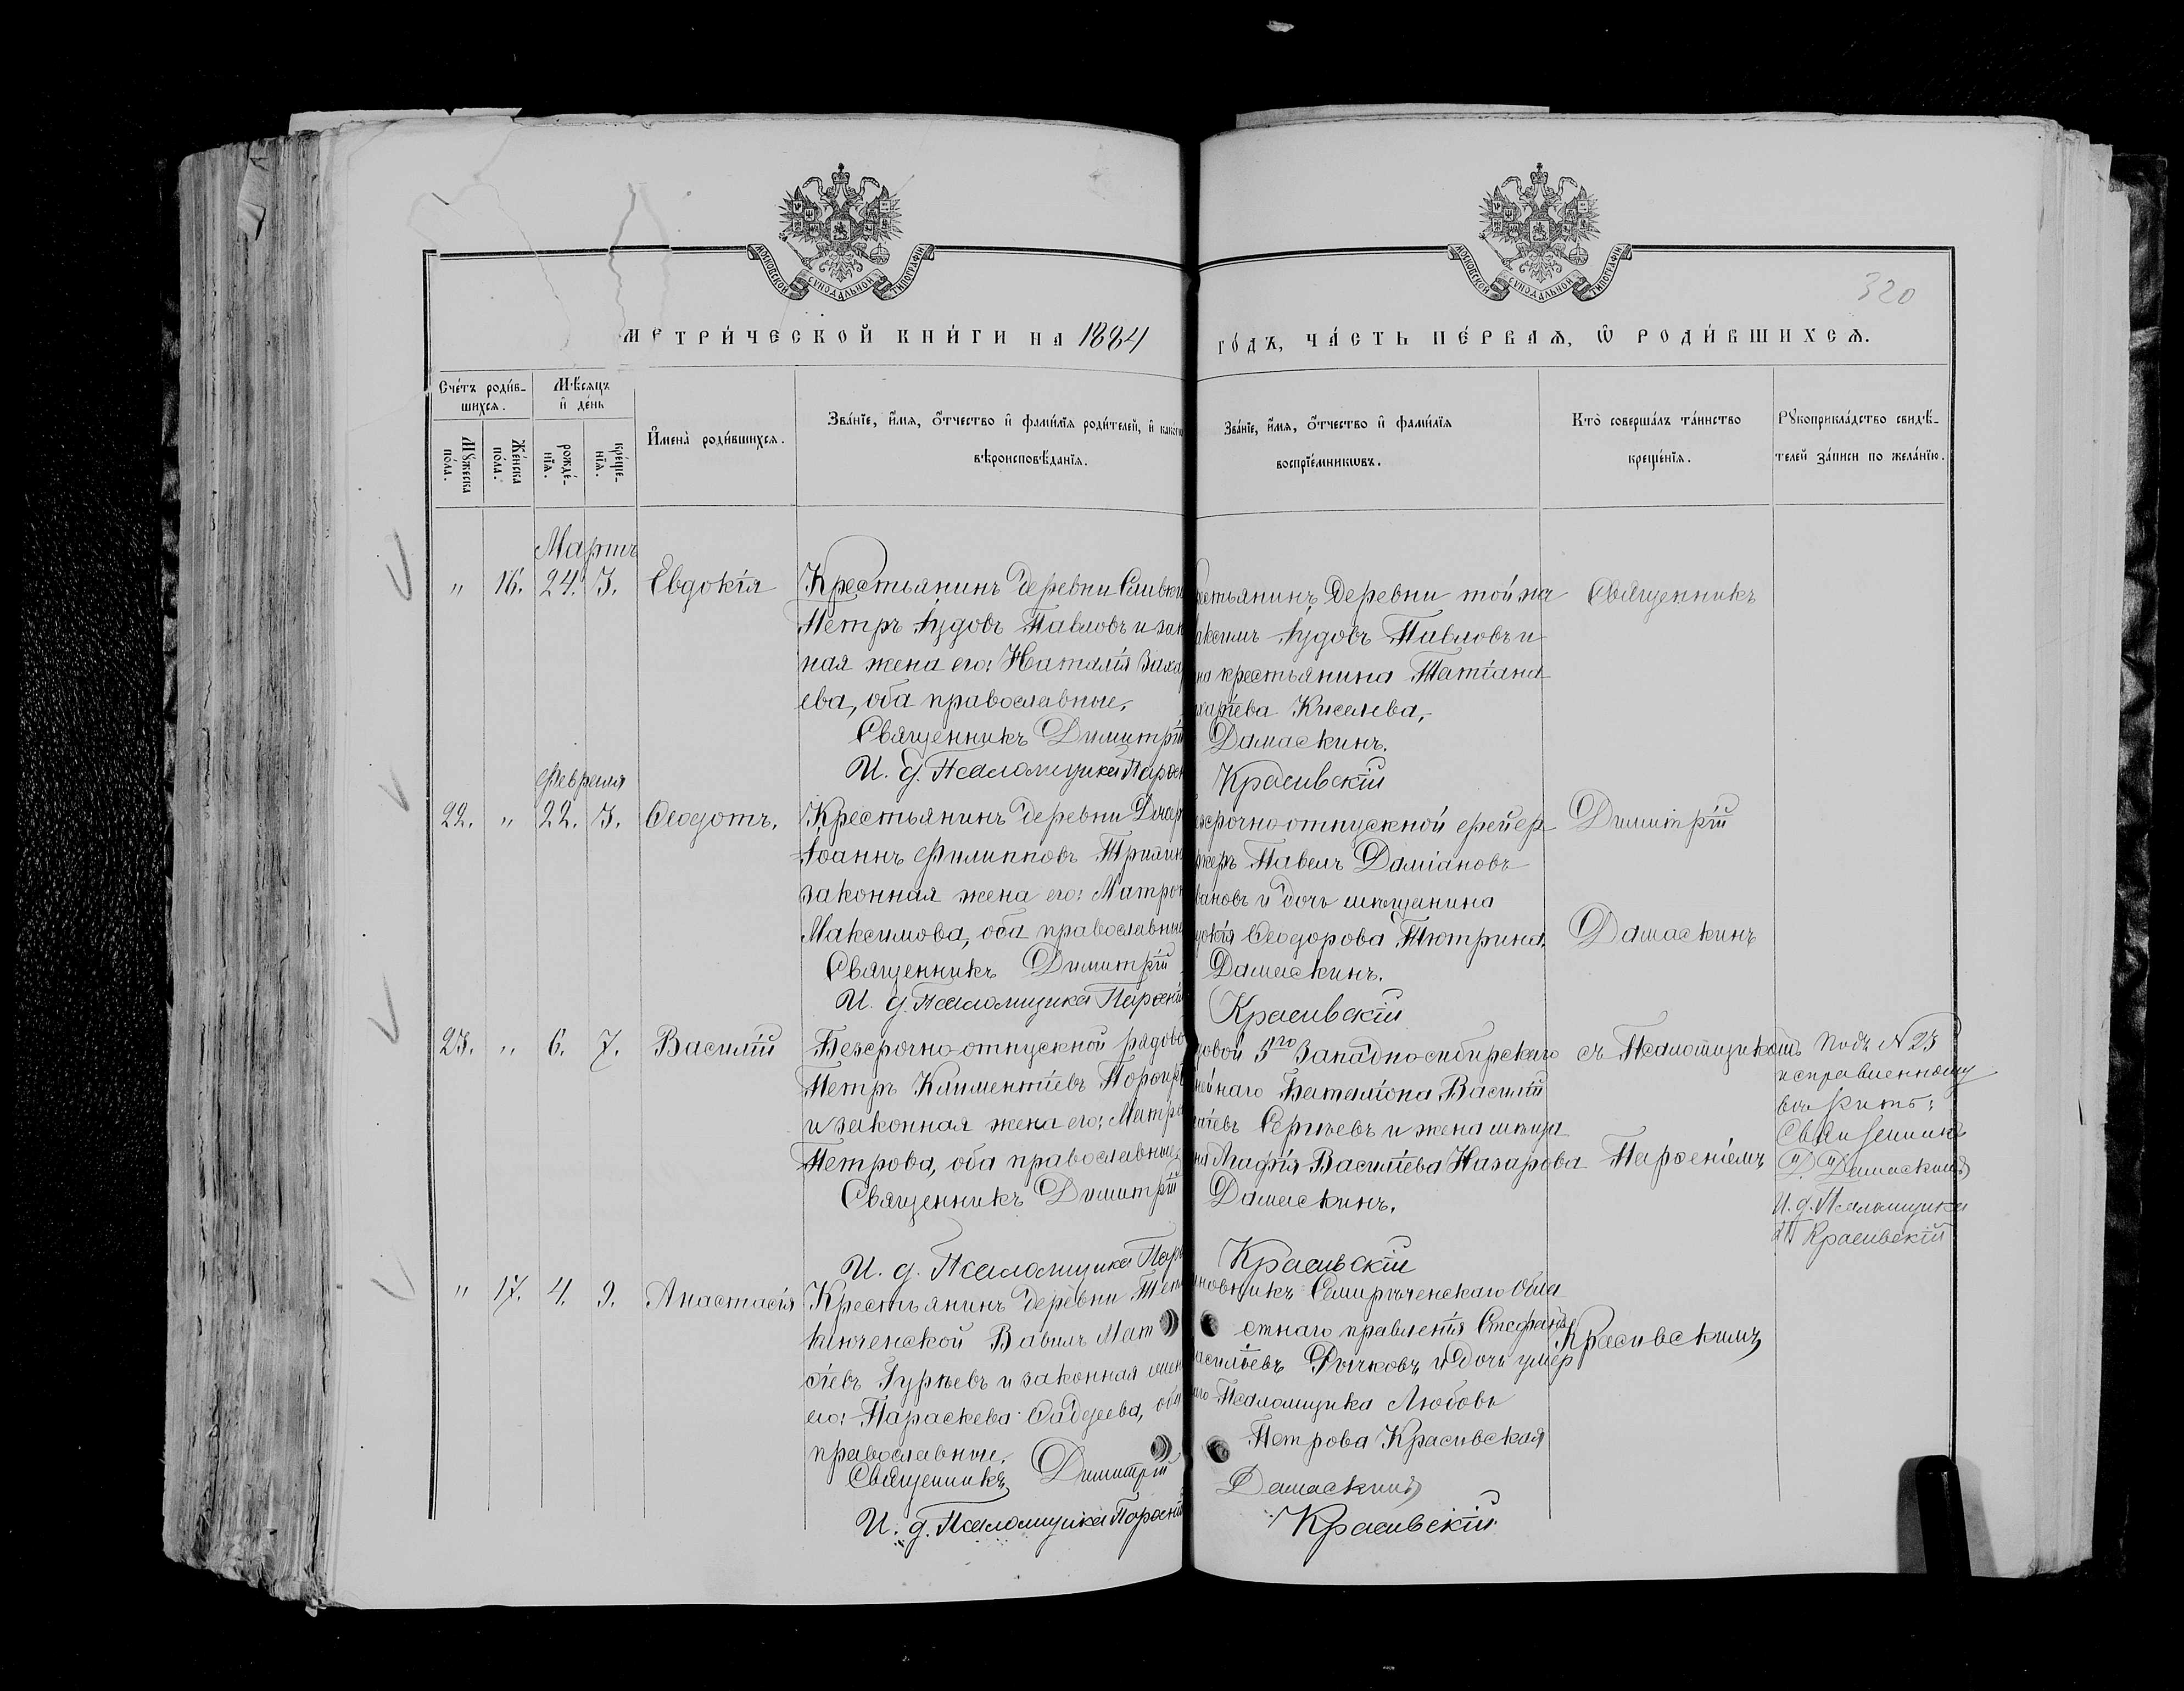 МОСКОВСКОЙ СѴНОДАЛЬНОЙ ТИПОГРАФІИ
МОСКОВСКОЙ СѴНОДАЛЬНОЙ ТИПОГРАФІИ
320
МЕТРИ́ЧЕСКОЙ КНИ́ГИ НА 1884
ГО́ДЪ, ЧА́СТЬ ПЕ́РВАѦ, Ѡ РОДИ́ВШИХСѦ.
Сче́тъ роди́в-
шихсѧ.
Мѣ́сѧцъ
и҆ де́нь
Мꙋ́жеска
по́ла.
Же́нска
по́ла.
рожде́-
нїѧ.
креще́-
нїѧ.
И҆мена̀ роди́вшихсѧ.
Зва́нїе, и҆́мѧ, ѻ҆́тчество и҆ фами́лїѧ роди́телей, и҆ како́гѡ
вѣроисповѣ́данїѧ.
Зва́нїе, и҆́мѧ, ѻ҆́тчество и҆ фами́лїѧ
воспрїе́мникѡвъ.
Кто̀ соверша́лъ та́инство
креще́нїѧ.
Рꙋкоприкла́дство свидѣ́-
телей за́писи по жела́нїю.
Мартъ
„ 16. 24. 3. Евдокія
Крестьянинъ деревни
Петръ Іудовъ Павловъ и зак
ная жена его: Наталія Заха
ева, оба православные.
Священникъ Димитрій
И. д. Псаломщика Парѳен
стьянинъ деревни той же
аксимъ Іудовъ Павловъ и
крестьянина Татіана
харіева Киселева,
Дамаскинъ.
Красивскій
Священникъ
Февраля
22. „ 22. 3. Ѳеодотъ.
Крестьянинъ деревни
Іоаннъ Филипповъ
законная жена его: Матрон
Максимова, оба православные
Священникъ Димитрій
И. д. Псаломщика Парѳеній
зсрочно-отпускной фейер
керъ Павелъ Даміановъ
вановъ и дочь мѣщанина
докія Ѳеодорова Тютрина.
Дамаскинъ.
Красивскій
Димитрій
Дамаскинъ
23. „ 6. 7. Василій
Безсрочно-отпускной рядово
Петръ Климентіевъ
и законная жена его: Матро
Петрова, оба православные,
Священникъ Димитрій
И. д. Псаломщика Парѳ
довой 3го Западно-сибирскаго
нейнаго Баталіона Василій
Сергѣевъ и жена мѣща
на Агафія Василіева Назарова
Дамаскинъ.
Красивскій
съ Псаломщикомъ
Парѳеніемъ
Подъ № 23
исправленному
вѣрить:
Священникъ
Д. Дамаскинъ
И. д. Псаломщика
П. Красивскій
„ 17. 4. 9. Анастасія
Крестьянинъ деревни
ключенской Вавилъ Мат
ѳіевъ Гурьевъ и законная жен
его: Параскева Ѳаддеева, оба
православные.
Священникъ Димитрій
И. д. Псаломщика Парѳеній
новникъ Семирѣченскаго Обла
стнаго правленія Стефанъ
асиліевъ Рычковъ и дочь умер
аго Псаломщика Любовь
Петрова Красивская
Дамаскинъ
Красивскій
Красивскимъ